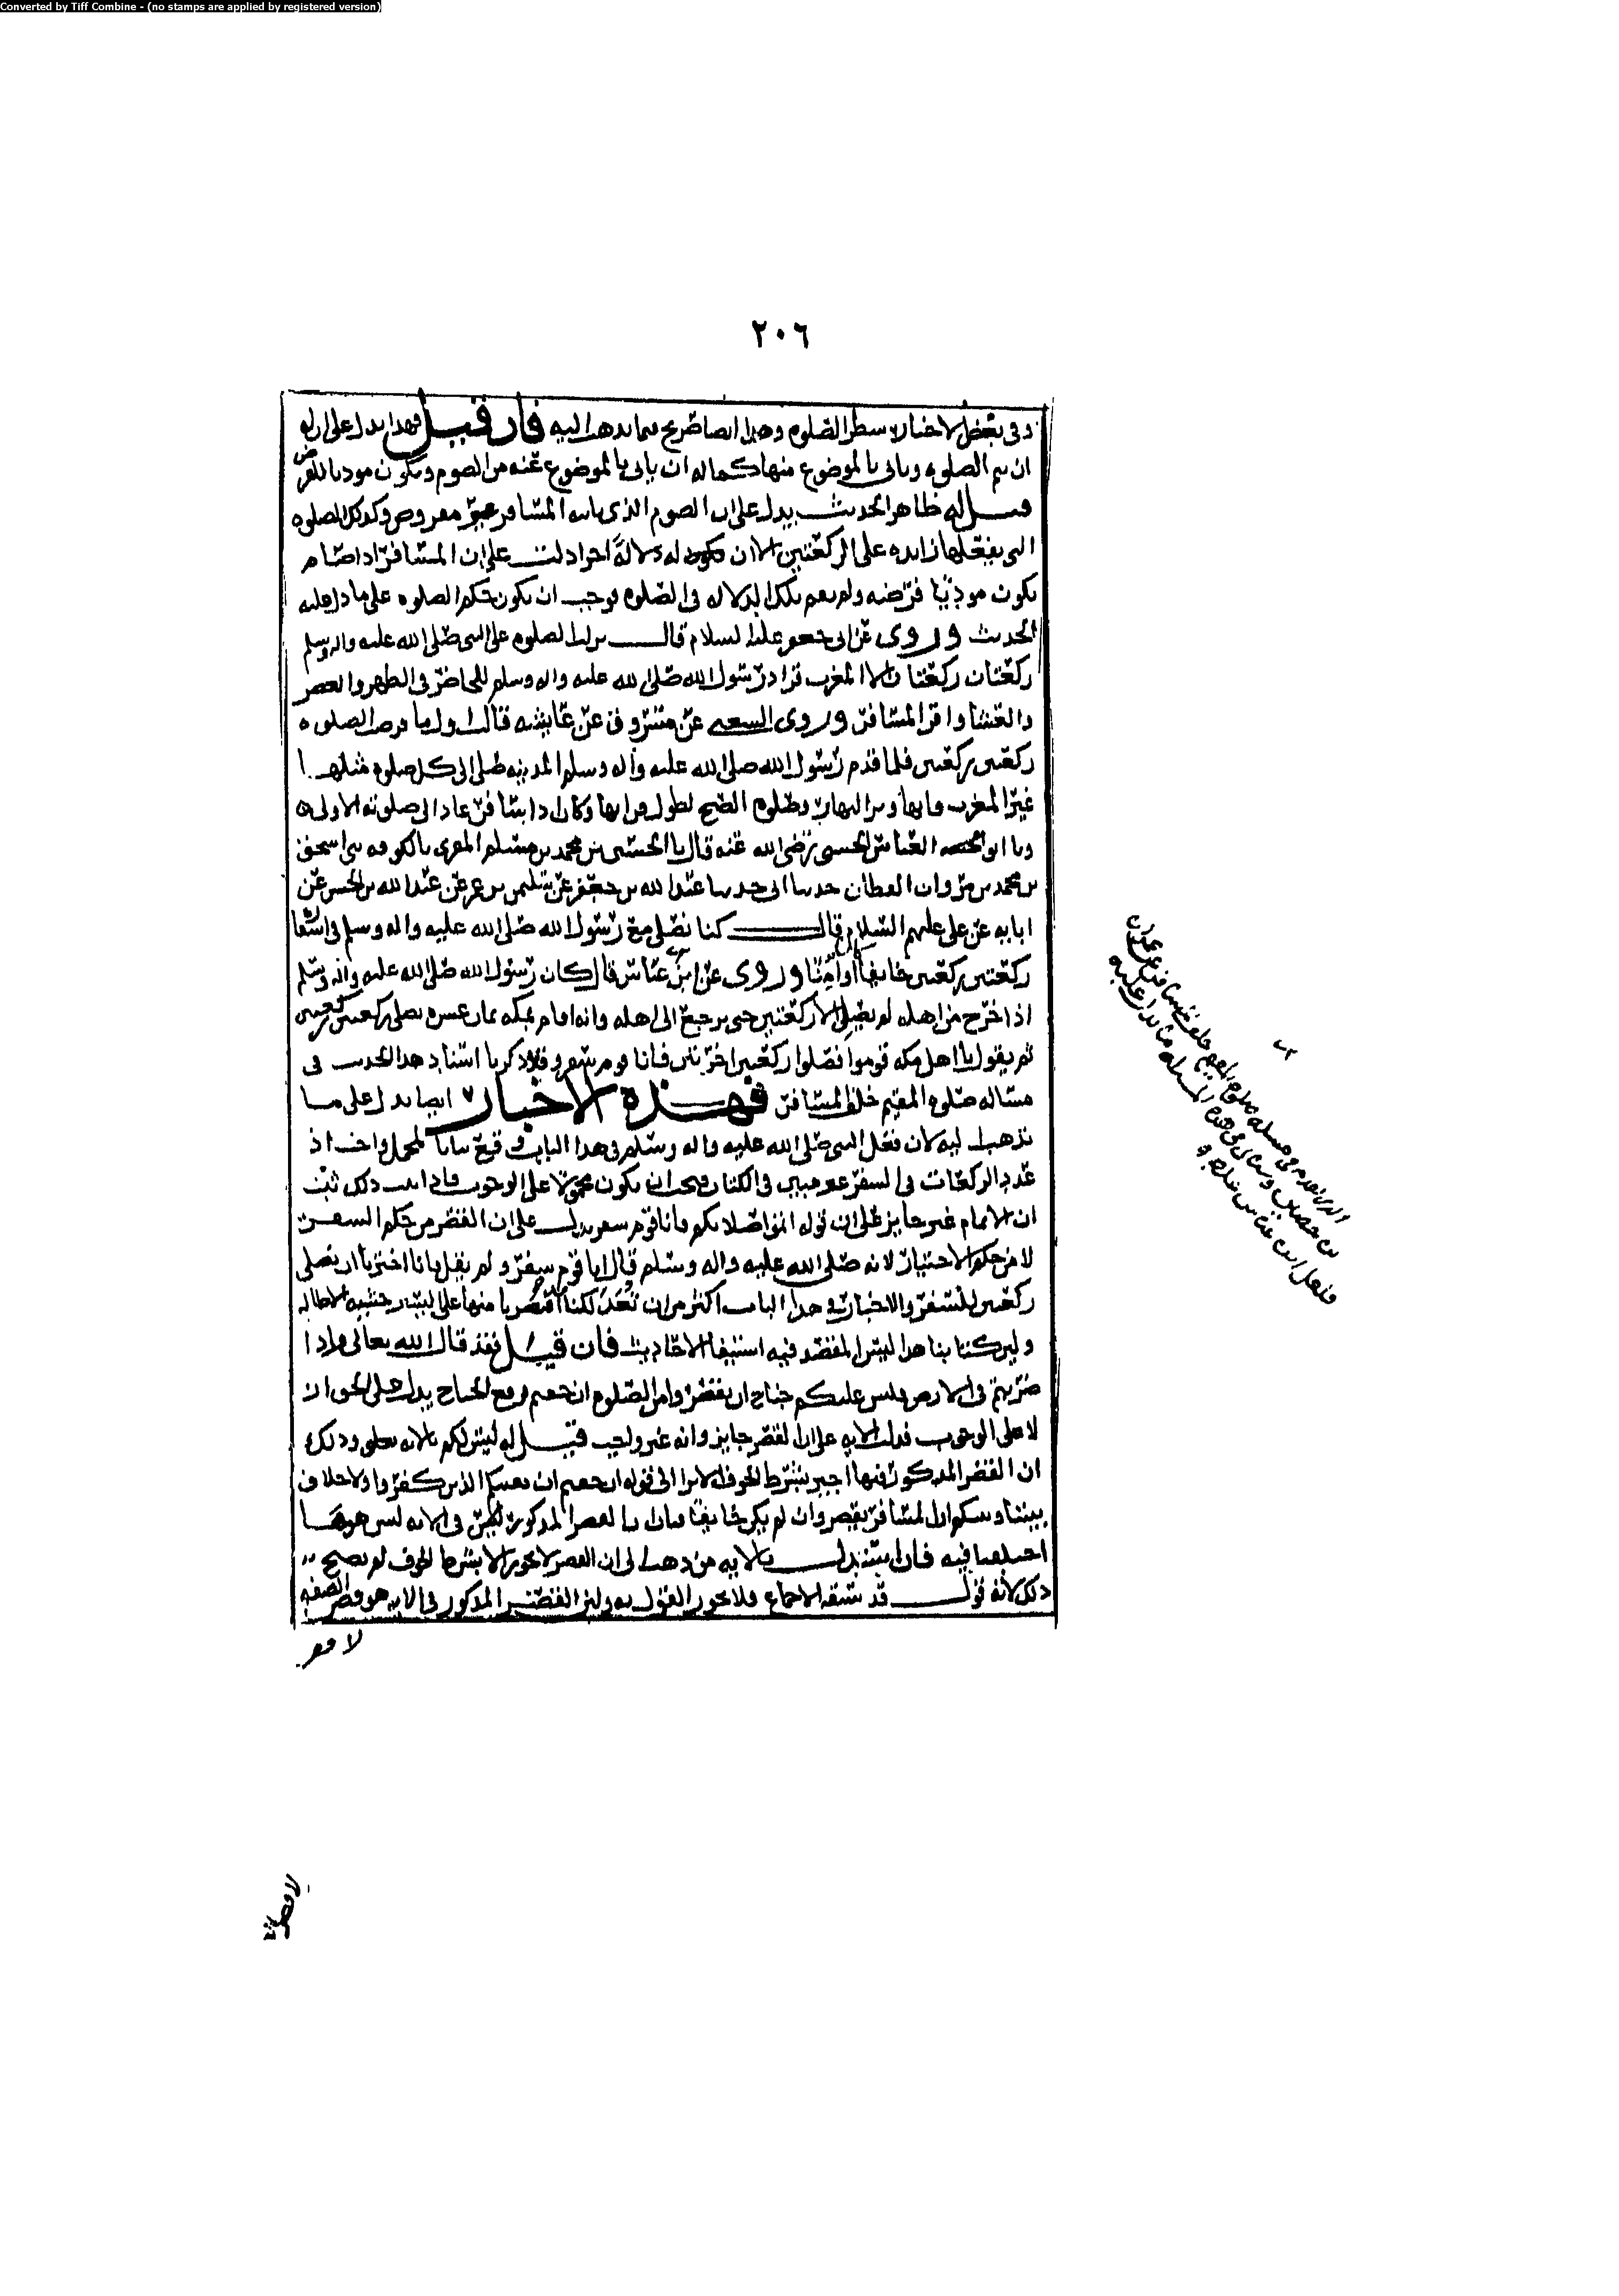 Converted by Tiff Combine - (no stamps are applied by registered version)
٢٠٦
وفي بعض الاخبار شطر الصلوه وهذا ايضا صريح فيما نذهب اليه فان قيل فهذا يدل على ان له
ان يتم الصلوه وياتى بالموضوع منها كما له ان ياتى بالموضوع عنه من الصوم ويكون موديا للفرض
قيل له ظاهر الحديث يدل على ان الصوم الذى ياتيه المسافر غير مفروض وكذلك الصلوه
التى يفعلها زايده على الركعتين الا ان تكون له دلالة اخرا دلت على ان المسافر اذا صام
يكون موديا فرضه ولم يقم تلك الدلاله في الصلوه فوجب ان يكون حكم الصلوه على ما دل عليه
الحديث وروى عن ابى جعفر عليه السلام قال نزلت الصلوه على النبى صلى الله عليه واله وسلم
ركعتان ركعتان الا المغرب فزاد رسول الله صلى الله عليه واله وسلم للحاضر فى الظهر والعصر
والعشا واقر المسافر وروى الشعبى عن مسروق عن عايشه قالت اول ما فرضت الصلوه
ركعتين ركعتين فلما قدم رسول الله صلى الله عليه واله وسلم المدينه صلى الى كل صلوه مثلها
غير المغرب فانها وتر النهار وصلوه الصبح لطول قرانها وكان اذا سافر عاد الى صلوته الاولى
ونا ابو العباس الحسنى رضى الله عنه قال نا الحسين بن محمد بن مسلم المقرى بالكوفه نى اسحق
بن محمد بن مروان القطان حدثنا ابى حدثنا عبد الله بن جعفر عن سليمن بن عمر عن عبد الله بن الحسن عن
ابايه عن على عليهم السلام قال كنا نصلى مع رسول الله صلى الله عليه واله وسلم فى اسفاره
ركعتين ركعتين خايفا او امنا وروى عن ابن عباس قال كان رسول الله صلى الله عليه واله وسلم
اذا خرج من اهله لم يصل الا ركعتين حتى يرجع الى اهله وانه اقام بمكه ثمان عشره يصلى ركعتين ركعتين
ثم يقول يا اهل مكه قوموا فصلوا ركعتين اخريين فانا قوم سفر وقد ذكرنا اسناد هذا الحديث فى
مساله صلوه المقيم خلف المسافر فهذه الاخبار ايضا يدل على ما
نذهب اليه لان فعل النبى صلى الله عليه واله وسلم فى هذا الباب وقع بيانا لمجمل واجب اذ
عدد الركعات فى السفر غير مبين فى الكتاب فيجب ان يكون محمولا على الوجوب فاذا ثبت ذلك ثبت
ان الاتمام غير جايز على ان قوله اتموا صلاتكم فانا قوم سفر يدل على ان القصر من حكم السفر
لا من حكم الاختيار لانه صلى الله عليه واله وسلم قال انا قوم سفر ولم يقل فانا اخترنا ان نصلى
ركعتين للسفر والاخبار فى هذا الباب اكثر من ان تعد لكنا اقتصرنا منها على اليسير خشيه الاطاله
وليس كتابنا هذا ليس المقصد فيه استيفا الاحاديث فان قيل فقد قال الله تعالى واذا
ضربتم فى الارض فليس عليكم جناح ان تقصروا من الصلوه ان خفتم ورفع الجناح يدل على الجواز
لا على الوجوب فدلت الايه على ان القصر جايز وانه غير واجب قيل له ليس لكم بالايه تعلق وذلك
ان القصر المذكور فيها اجيز بشرط الخوف الا ترا الى قوله ان خفتم ان يفتنكم الذين كفروا ولا خلاف
بيننا وبينكم ان المسافر يقصر وان لم يكن خايفا فبان بان القصر المذكور فى الايه ليس هو مما
اختلفنا فيه فان استدل بالايه من ذهب الى ان القصر لا يجوز الا بشرط الخوف لم يصح
ذلك لانه قول قد سبقه الاجماع فلا يجوز القول به وليس القصر المذكور فى الايه هو قصر الصفه
لا قصر